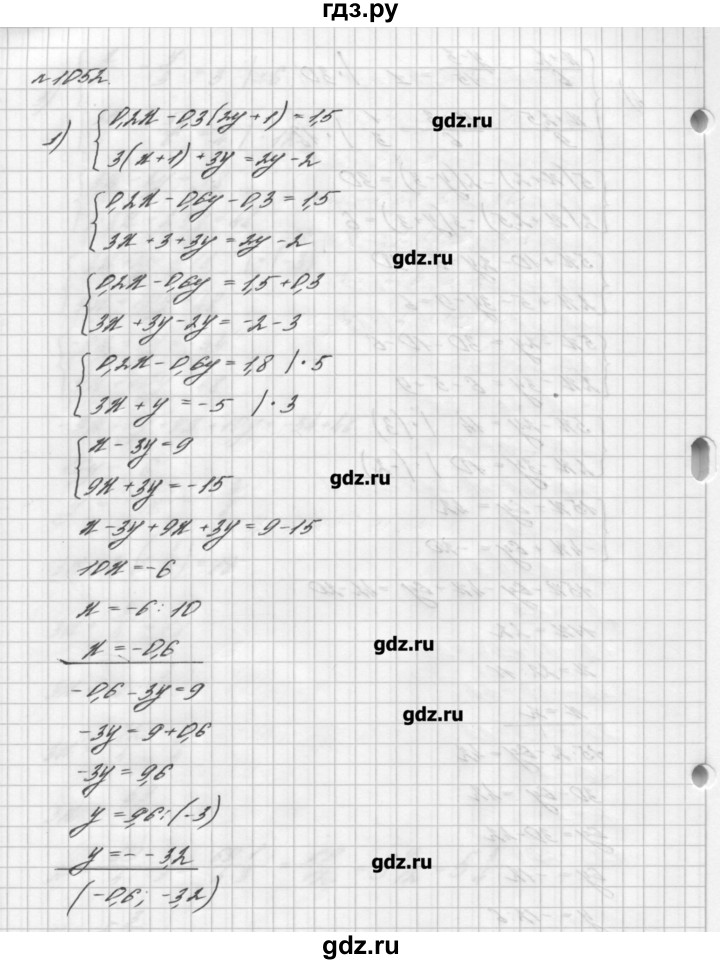 гдз.ру
№1052.
1) { 0,2x - 0,3(2y+1) = 1,5
3(x+1) + 3y = 2y - 2
{ 0,2x - 0,6y - 0,3 = 1,5
3x + 3 + 3y = 2y - 2
{ 0,2x - 0,6y = 1,5 + 0,3
3x + 3y - 2y = -2 - 3
{ 0,2x - 0,6y = 1,8 | · 5
3x + y = -5 | · 3
{ x - 3y = 9
9x + 3y = -15
x - 3y + 9x + 3y = 9 - 15
10x = -6
x = -6 : 10
x = -0,6
-0,6 - 3y = 9
-3y = 9 + 0,6
-3y = 9,6
y = 9,6 : (-3)
y = - -3,2
(-0,6; -3,2)
gdz.ru
gdz.ru
gdz.ru
gdz.ru
gdz.ru
gdz.ru
gdz.ru